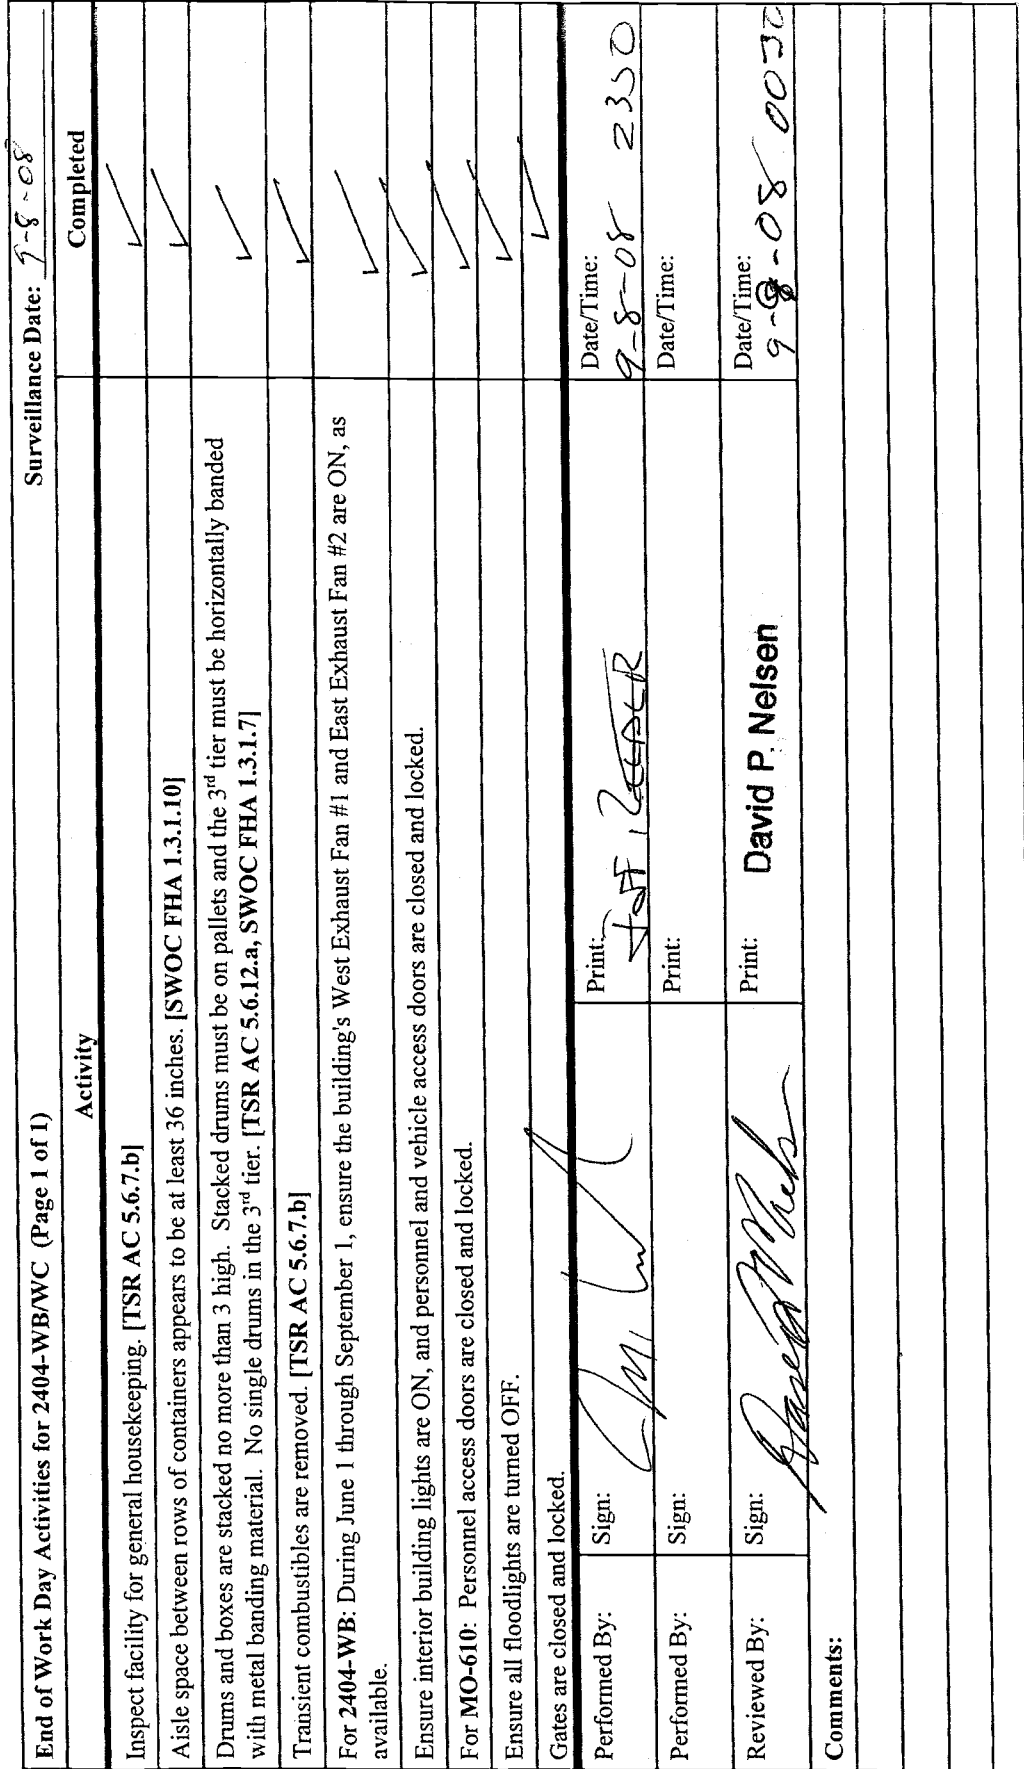 End of Work Day Activities for 2404-WB/WC (Page 1 of 1) Surveillance Date: 9-8-08
Activity Completed
Inspect facility for general housekeeping. [TSR AC 5.6.7.b] ✓
Aisle space between rows of containers appears to be at least 36 inches. [SWOC FHA 1.3.1.10] ✓
Drums and boxes are stacked no more than 3 high. Stacked drums must be on pallets and the 3rd tier must be horizontally banded
with metal banding material. No single drums in the 3rd tier. [TSR AC 5.6.12.a, SWOC FHA 1.3.1.7] ✓
Transient combustibles are removed. [TSR AC 5.6.7.b] ✓
For 2404-WB: During June 1 through September 1, ensure the building's West Exhaust Fan #1 and East Exhaust Fan #2 are ON, as
available. ✓
Ensure interior building lights are ON, and personnel and vehicle access doors are closed and locked. ✓
For MO-610: Personnel access doors are closed and locked. ✓
Ensure all floodlights are turned OFF. ✓
Gates are closed and locked. ✓
Performed By: Sign: Print: Date/Time:
9-8-08 2350
Performed By: Sign: Print: Date/Time:
Reviewed By: Sign: Print: David P. Nelsen Date/Time:
9-8-08 0030
Comments: